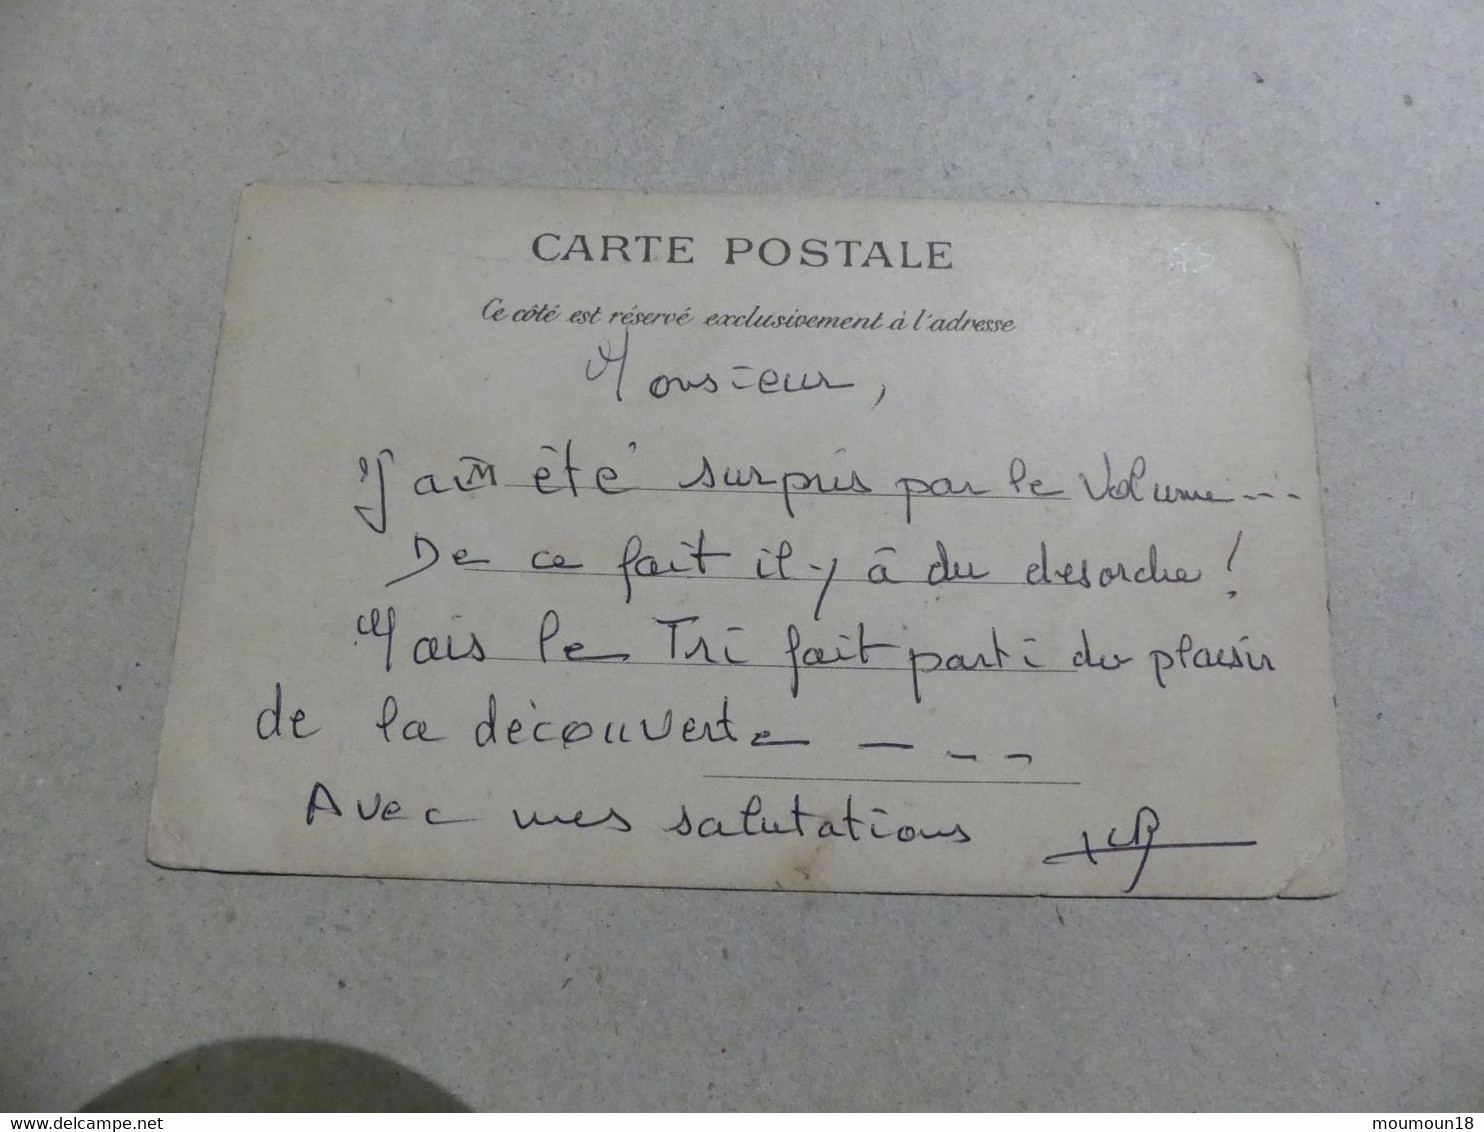 CARTE POSTALE
Ce côté est réservé exclusivement à l'adresse
Monsieur,
J'ai été surpris par le Volume ---
De ce fait il y à du desordre !
Mais le Tri fait parti du plaisir
de la découverte - - -
Avec mes salutations
delcampe.net
moumoun18